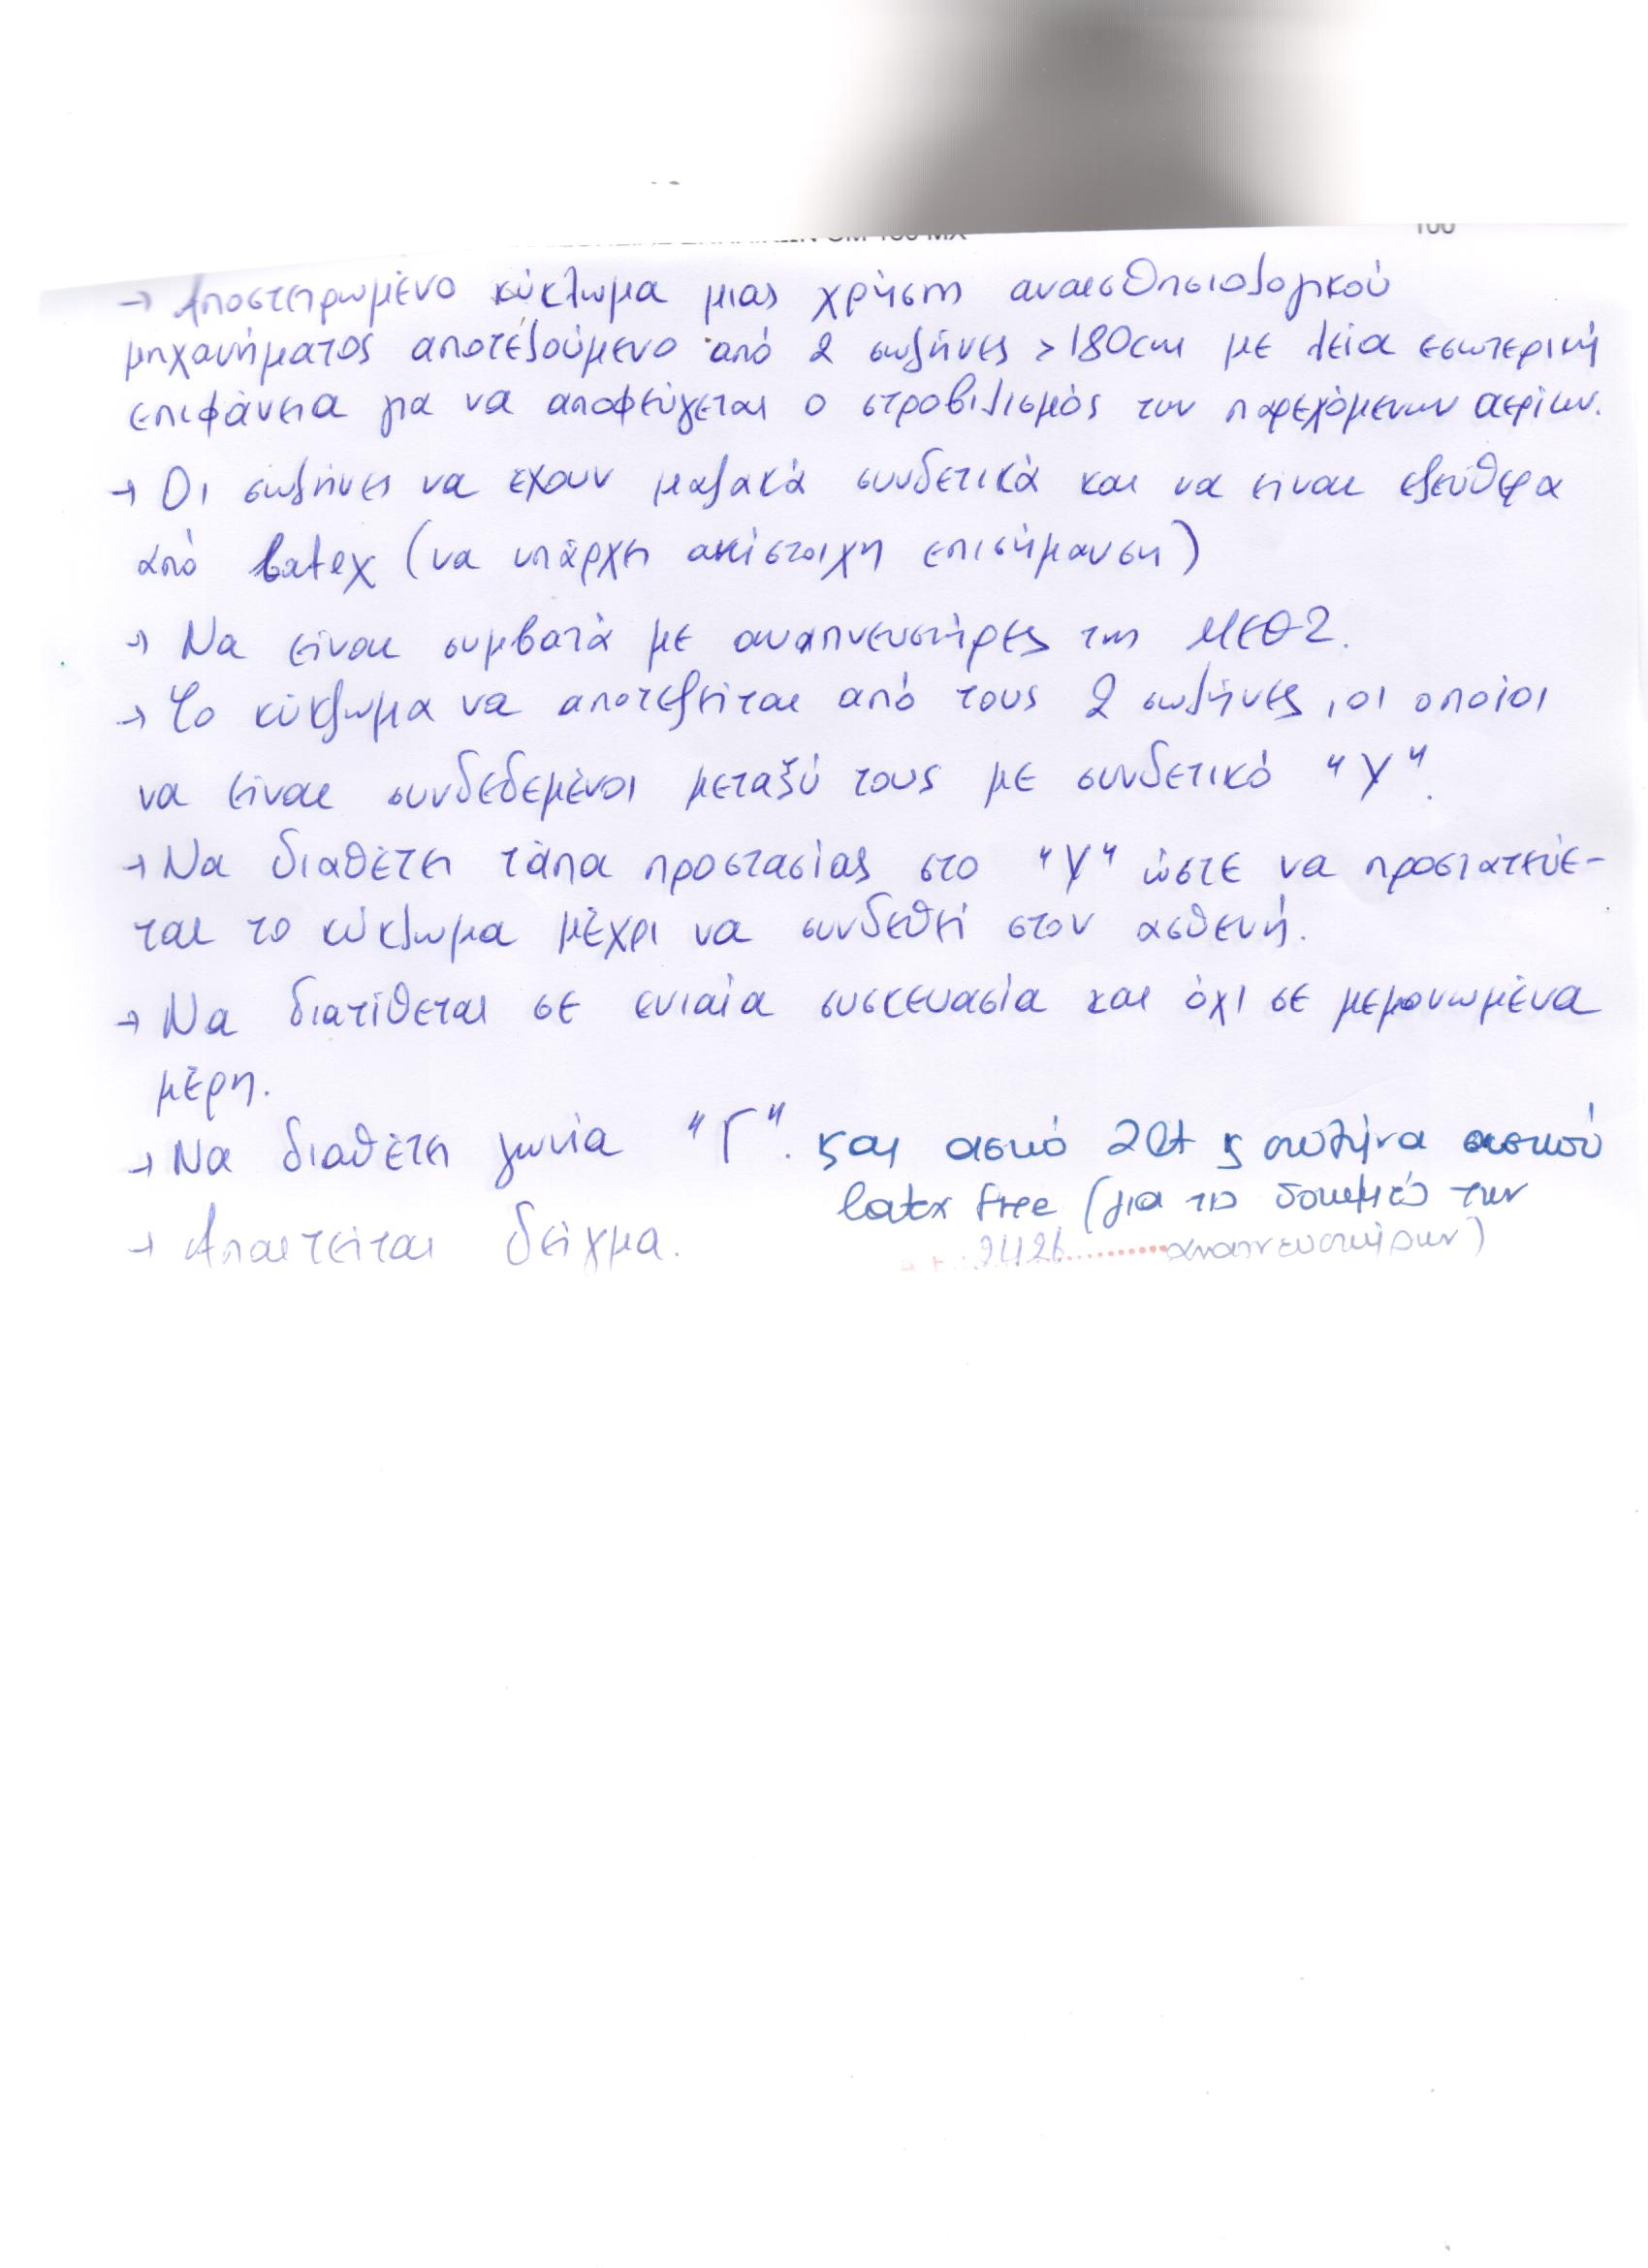 100
→ Αποστειρωμένο κύκλωμα μιας χρήσης αναισθησιολογικού
μηχανήματος αποτελούμενο από 2 σωλήνες >180cm με λεία εσωτερική
επιφάνεια για να αποφεύγεται ο στροβιλισμός των παρεχόμενων αερίων.
→ Οι σωλήνες να έχουν μαλακά συνδετικά και να είναι ελεύθερα
από latex (να υπάρχει αντίστοιχη επισήμανση)
→ Να είναι συμβατά με αναπνευστήρες της ΜΕΘ2.
→ Το κύκλωμα να αποτελείται από τους 2 σωλήνες, οι οποίοι
να είναι συνδεδεμένοι μεταξύ τους με συνδετικό "Υ".
→ Να διαθέτει τάπα προστασίας στο "Υ" ώστε να προστατεύε-
ται το κύκλωμα μέχρι να συνδεθεί στον ασθενή.
→ Να διατίθεται σε ενιαία συσκευασία και όχι σε μεμονωμένα
μέρη.
→ Να διαθέτει γωνία "Γ". και ασκό 2lt κ σωλήνα ασκού
latex free (για το δοκιμές των
→ Απαιτείται δείγμα. αναπνευστήρων)